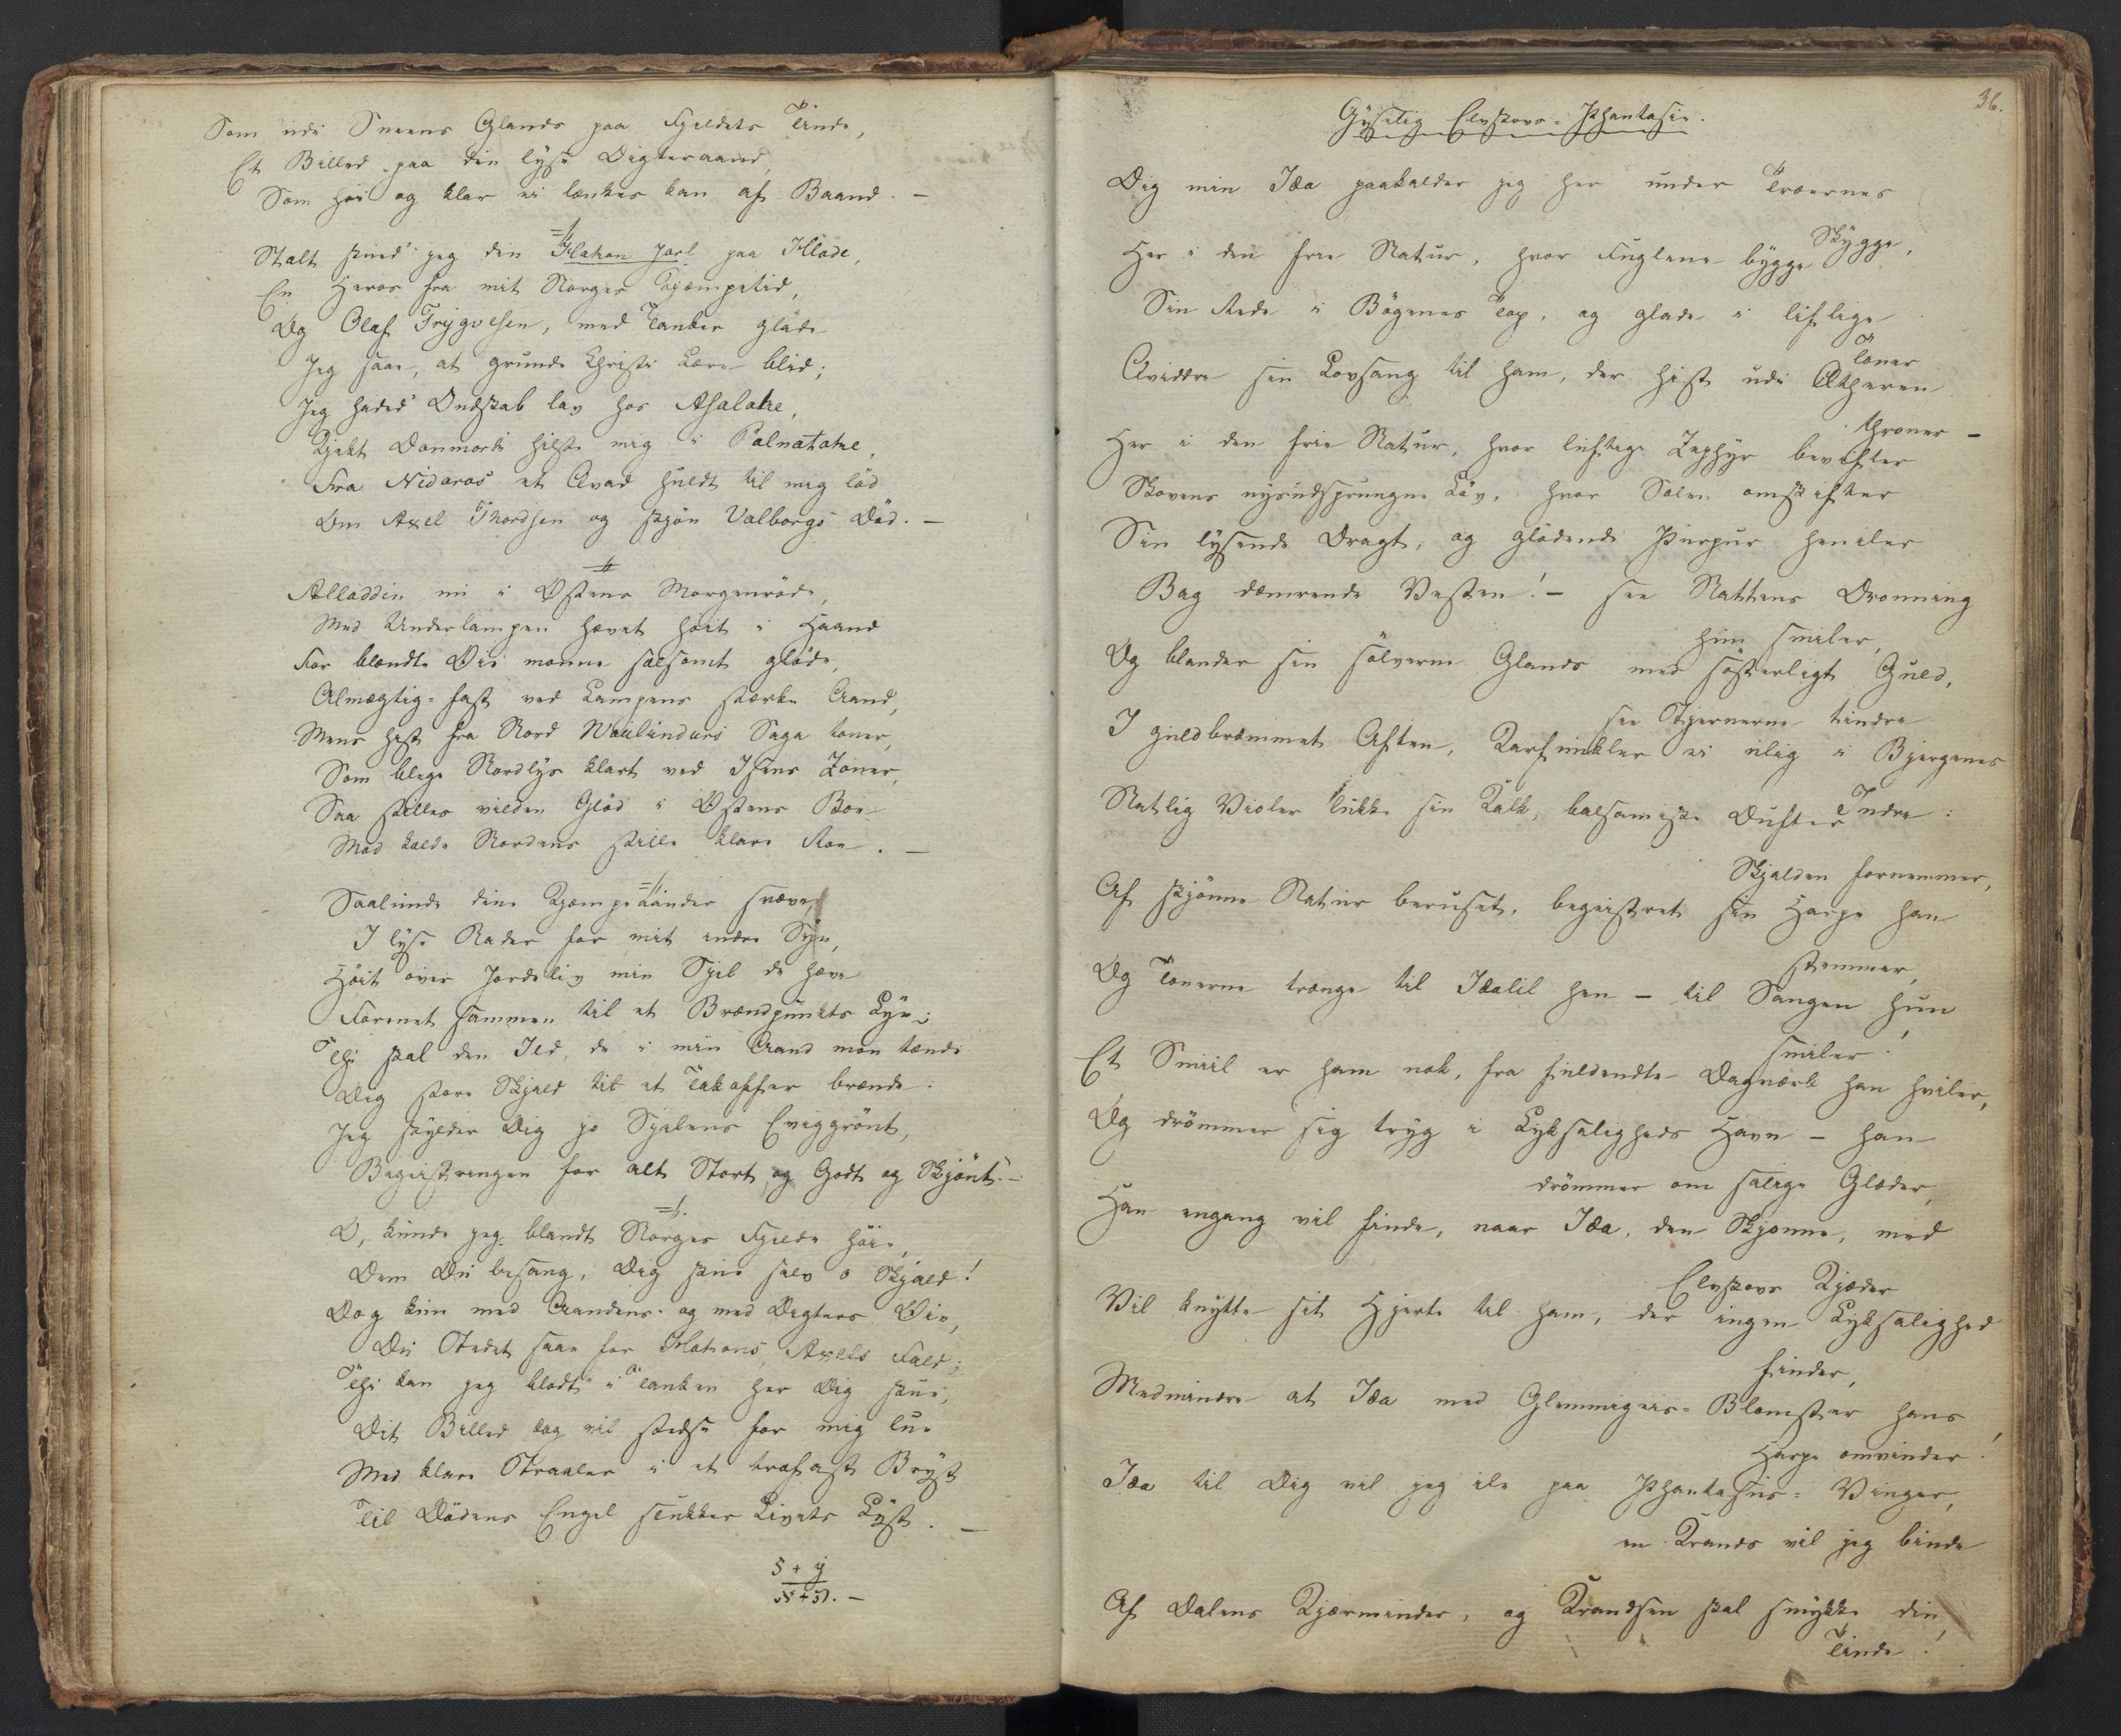 Som udi Sneens Glands paa Fjeldets Tinde,
Et Billed paa din lyse Digteraand,
Som höi og klar ei lænkes kan af Baand. —
Stolt skued' jeg din Hakon Jarl paa Hlade,
En Heros fra mit Norges Kjæmpetid,
Og Olaf Trygvesen, med Tanker glade
Jeg saae, at grunde Christi Lære blid;
Jeg haded' Ondskab lav hos Asaloke,
Kjekt Danmark hilste mig i Palnatoke,
Fra Nidaros et Qvad huldt til mig lød
Om Axel Thordsen og skjön Valborgs Död. —
Alladdin mi i Østens Morgenröde,
Med Underlampen hævet höit i Haand
For blændte Öie monne sælsomt glöde,
Almægtig-fast ved Lampens stærke Aand,
Mens hist fra Nord Vaulundurs Saga toner,
Som blege Nordlys klart ved Isens Zoner,
Saa stilles vilden Glöd i Østens Boe
Mod kolde Nordens stille klare Roe. —
Saalunde dine Kjæmpeaander svæve
I lyse Rader for mit indre Syn,
Höit over Jordeliv min Sjel de hæve
Forenet sammen til et Brændpunkts Lyn;
Thi skal den Ild, de i min Aand mon tænde
Dig store Skjald til et Takoffer brænde:
Jeg skylder Dig jo Sjelens Eviggrönt,
Begeistringen for alt Stort og Godt og Skjönt. —
O, kunde jeg blandt Norges Fjelde höie,
Dem Du besang, Dig skue selv o Skjald!
Dog kun med Aandens- og med Digters Öie,
Du Stedet saae for Hakons, Axels Fald;
Thi kan jeg blodt i Tanken her Dig skue,
Dit Billed dog vil stedse for mig lue
Med klare Straaler i et trofast Bryst
Til Dödens Engel slukker Livets Lyst. —
36.
Gyselig Elvskovs-Phantasie.
Dig min Ida paakalder jeg her under Træernes
Skygge,
Her i den frie Natur, hvor Fuglene bygge
Sin Rede i Bögenes Top, og glade i liflige
Toner
Qviddre sin Lovsang til ham, der hist udi Ætheren
throner —
Her i den frie Natur, hvor luftige Zephyr bevifter
Skovens nysudsprungne Löv, hvor Solen omskifter
Sin lysende Dragt, og glödende Purpur heniler
Bag dæmrende Vesten! — see Nattens Dronning
hun smiler,
Og blander sin sölverne Glands med sösterligt Guld,
see Stjernerne tindre
I guldbræmmet Aften, Karfunkler ei ulig i Bjergenes
Indre:
Natlig Violer lukke sin Kalk, balsamiske Dufter
Skjalden fornemmer,
Af skjönne Natur beruset, begeistret sin Harpe han
stemmer,
Og Tonerne trænge til Idalil hen — til Sangen hun
smiler!
Et Smiil er ham nok, fra fuldendte Dagværk han hviler,
Og drömmer sig tryg i Lyksaligheds Havn — han
drömmer om salige Glæder,
Han engang vil finde, naar Ida, den Skjonne, med
Elvskovs Kjæder
Vil knytte sit Hjerte til ham, der ingen Lyksalighed
finder,
Medmindre at Ida med Glemmigeis-Blomster hans
Harpe omvinder!
Ida til Dig vil jeg ile paa Phantasus-Vinger,
en Krands vil jeg binde
Af Dalens Kjærminder, og Krandsen skal smykke din
Tinde!